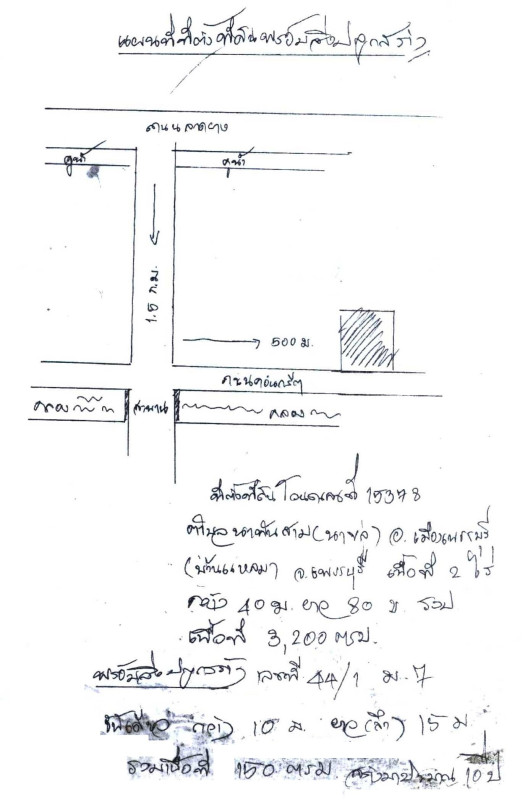 แผนที่ที่ตั้งที่ดินพร้อมสิ่งปลูกสร้าง
ถนนลาดยาง
คูน้ำ
คูน้ำ
1.5 ก.ม.
500 ม.
ถนนคอนกรีต
คลอง
สะพาน
คลอง
ที่ตั้งที่ดิน โฉนดเลขที่ 15378
ตำบล นาพันสาม (นาขลู่) อ. เมืองเพชรบุรี
(บ้านแหลม) จ.เพชรบุรี เนื้อที่ 2 ไร่
กว้าง 40 ม. ยาว 80 ม. รวม
เนื้อที่ 3,200 ตรม.
พร้อมสิ่งปลูกสร้าง เลขที่ 44/1 ม. 7
10 ม. ยาว (ลึก) 15 ม
รวมเนื้อที่ 150 ตรม สร้างมาประมาณ 10 ปี